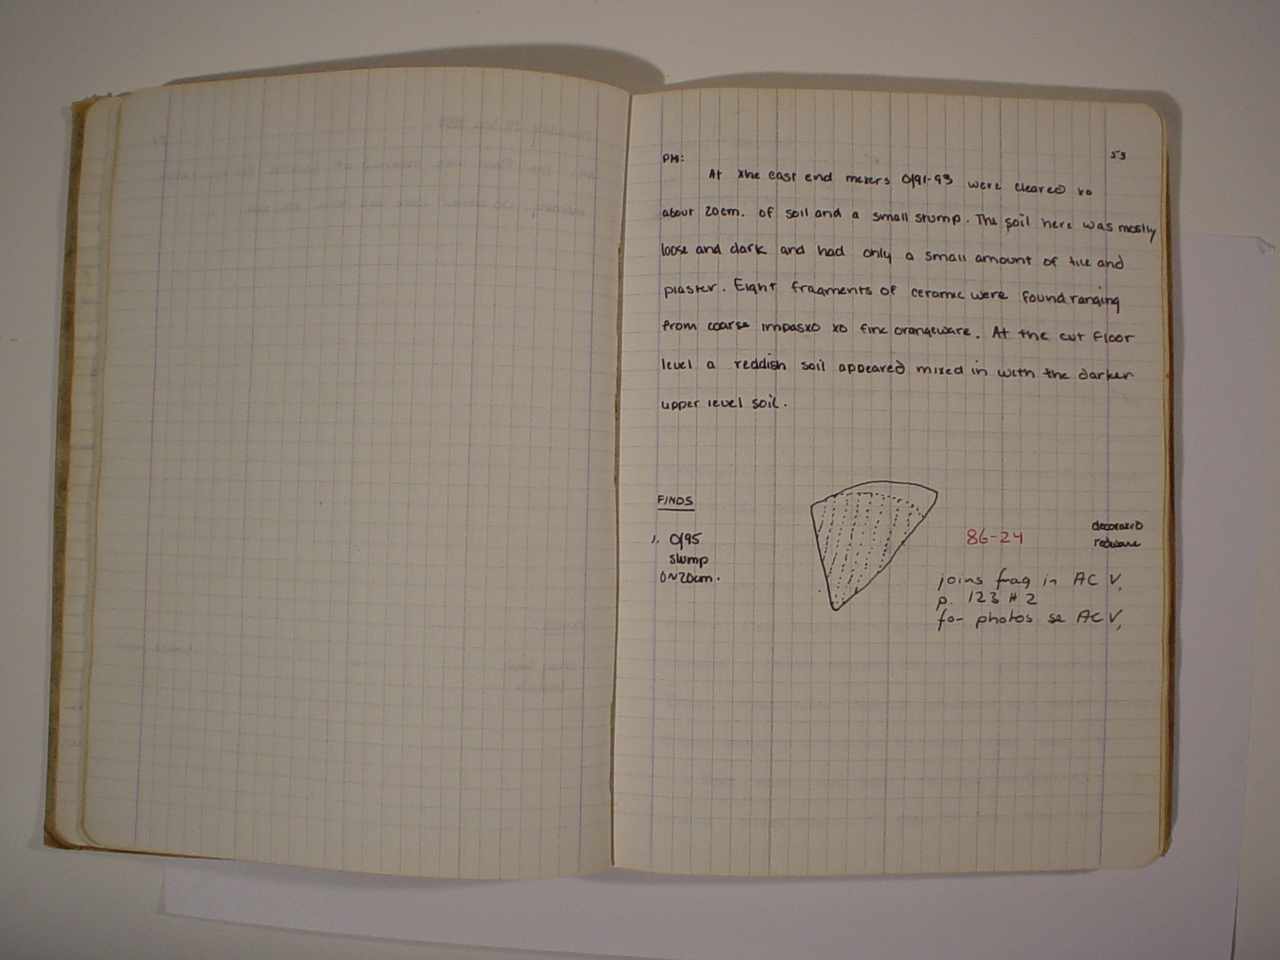 53
PM:
At the east end meters 0/91-93 were cleared to
about 20cm. of soil and a small stump. The soil here was mostly
loose and dark and had only a small amount of tile and
plaster. Eight fragments of ceramic were found ranging
from coarse impasto to fine orangeware. At the cut floor
level a reddish soil appeared mixed in with the darker
upper level soil.
FINDS
1. 0/95
stump
0~20cm.
86-24
decorated
redware
joins frag in AC V,
p. 123 # 2
for photos se AC V,